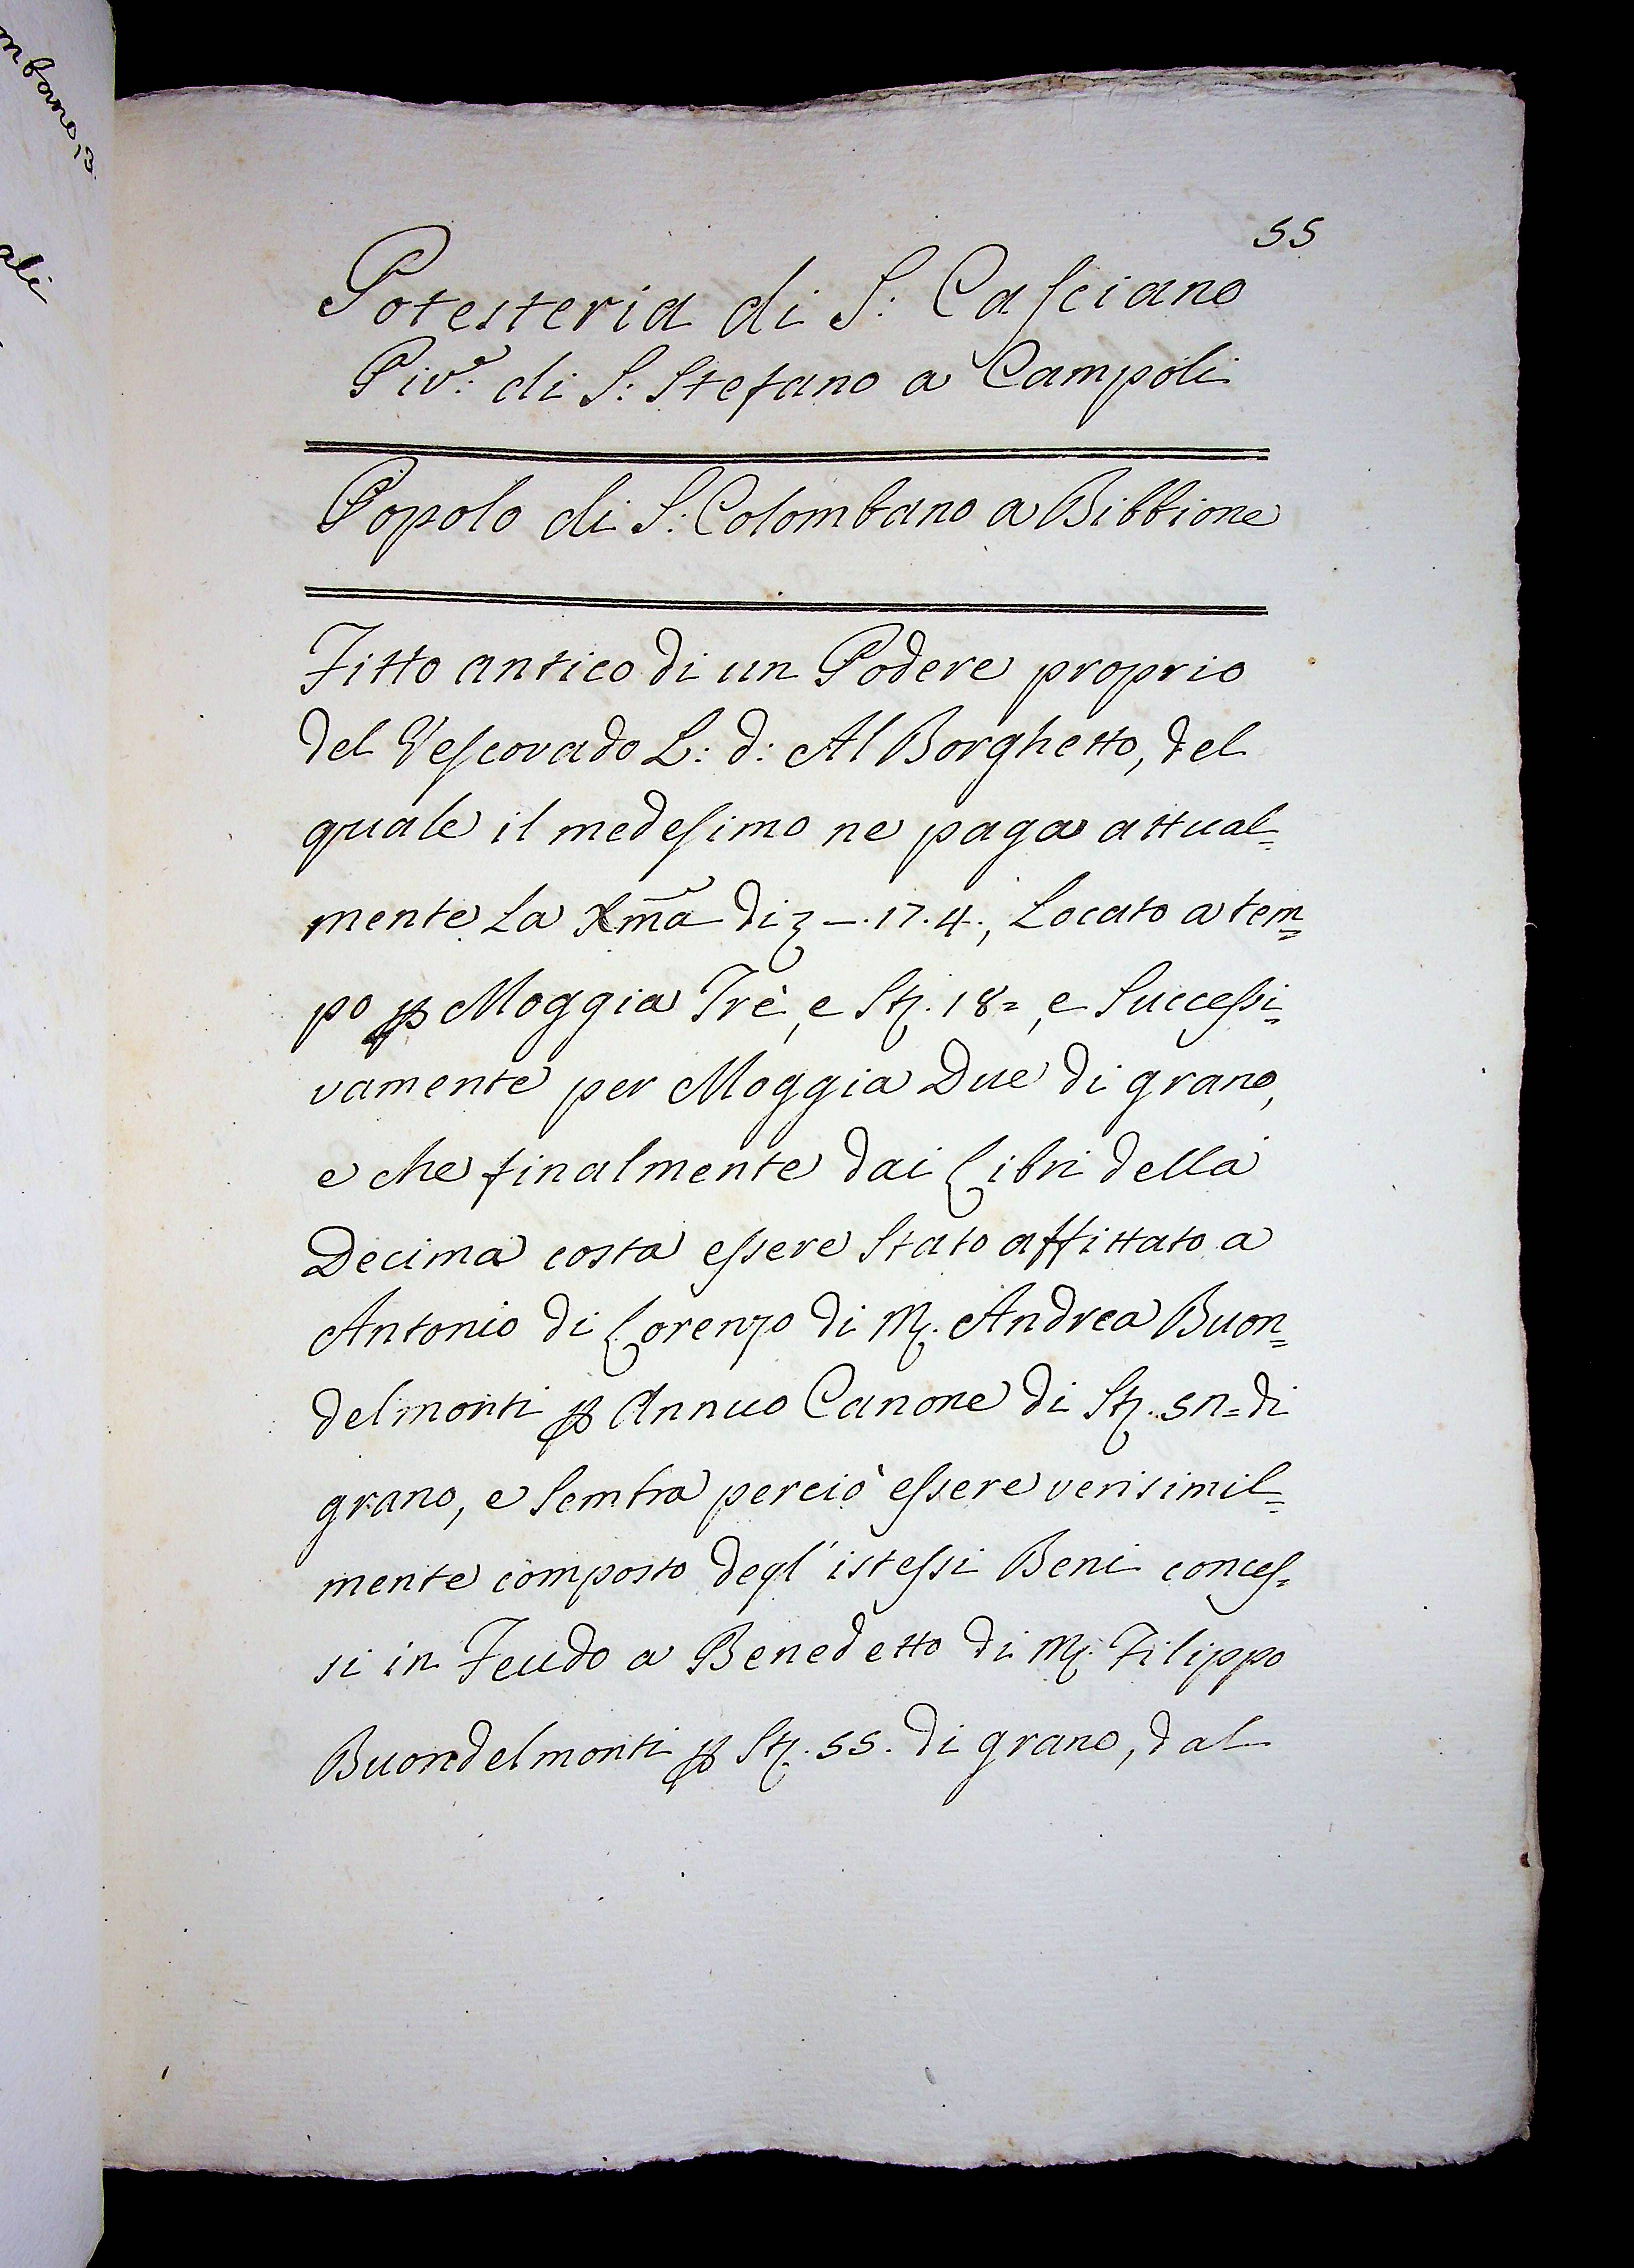 55
Potesteria di S: Casciano
Piv.e di S: Stefano a Campoli
Popolo di S: Colombano a Bibbione
Fitto antico di un Podere proprio
del Vescovado L: d: Al Borghetto, del
quale il medesimo ne paga attual=
mente La Xma di z —.17.4., Locato a tem=
po p Moggia Trè, e St. 18=, e Successi=
vamente per Moggia Due di grano,
e che finalmente dai Libri della
Decima costa essere Stato affittato a
Antonio di Lorenzo di M. Andrea Buon=
delmonti p Annuo Canone di St. di
grano, e Sembra perciò essere verisimil=
mente composto degl' istessi Beni conces=
si in Feudo a Benedetto di M. Filippo
Buondelmonti p St. 55. di grano, dal